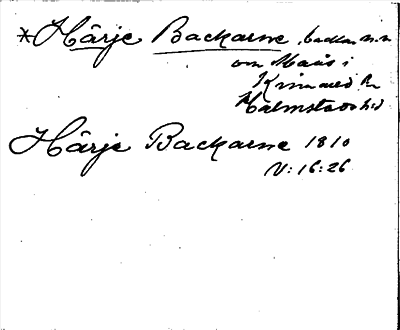 *Hårje Backarne, backar n.n
om Maås i
Kvinnered Rn
Halmstads hd
Hårje Backarne 1810
V: 16: 26